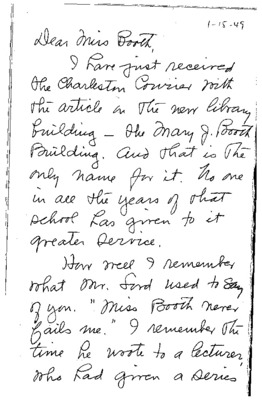 1-15-49
Dear Miss Booth,
I have just received
the Charleston Courier with
the article on the new library
building - the Mary J. Booth
Building. And that is the
only name for it. No one
in all the years of that
school has given to it
greater service.
How well I remember
what Mr. Lord used to say
of you. "Miss Booth never
fails me." I remember the
time he wrote to a lecturer,
who had given a series